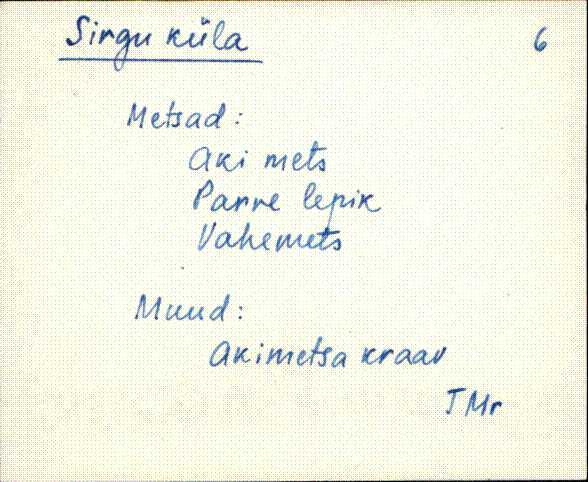 Singu küla
6
Metsad:
Aki mets
Panne lepik
Vahemets
Muud:
Akimetsa kraav
JMr